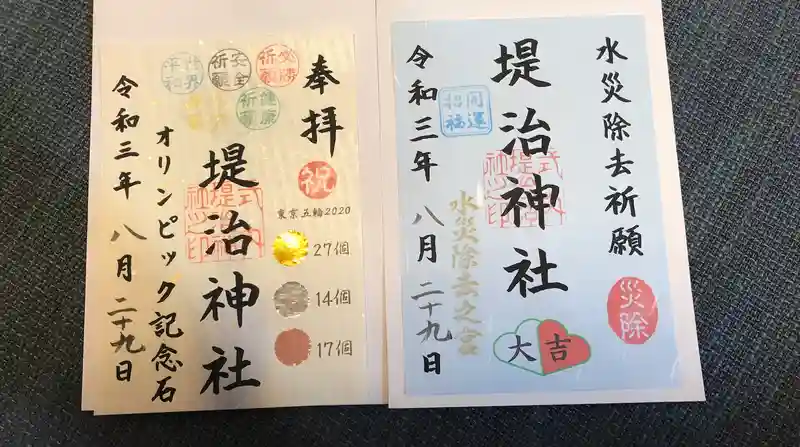 奉拝
祝
東京五輪2020
27個
14個
17個
必勝祈願
安全祈願
世界平和
健康祈願
堤治神社
オリンピック記念石
令和三年 八月 二十九日
水災除去祈願
災除
堤治神社
大吉
開運招福
水災除去之宮
令和三年 八月 二十九日